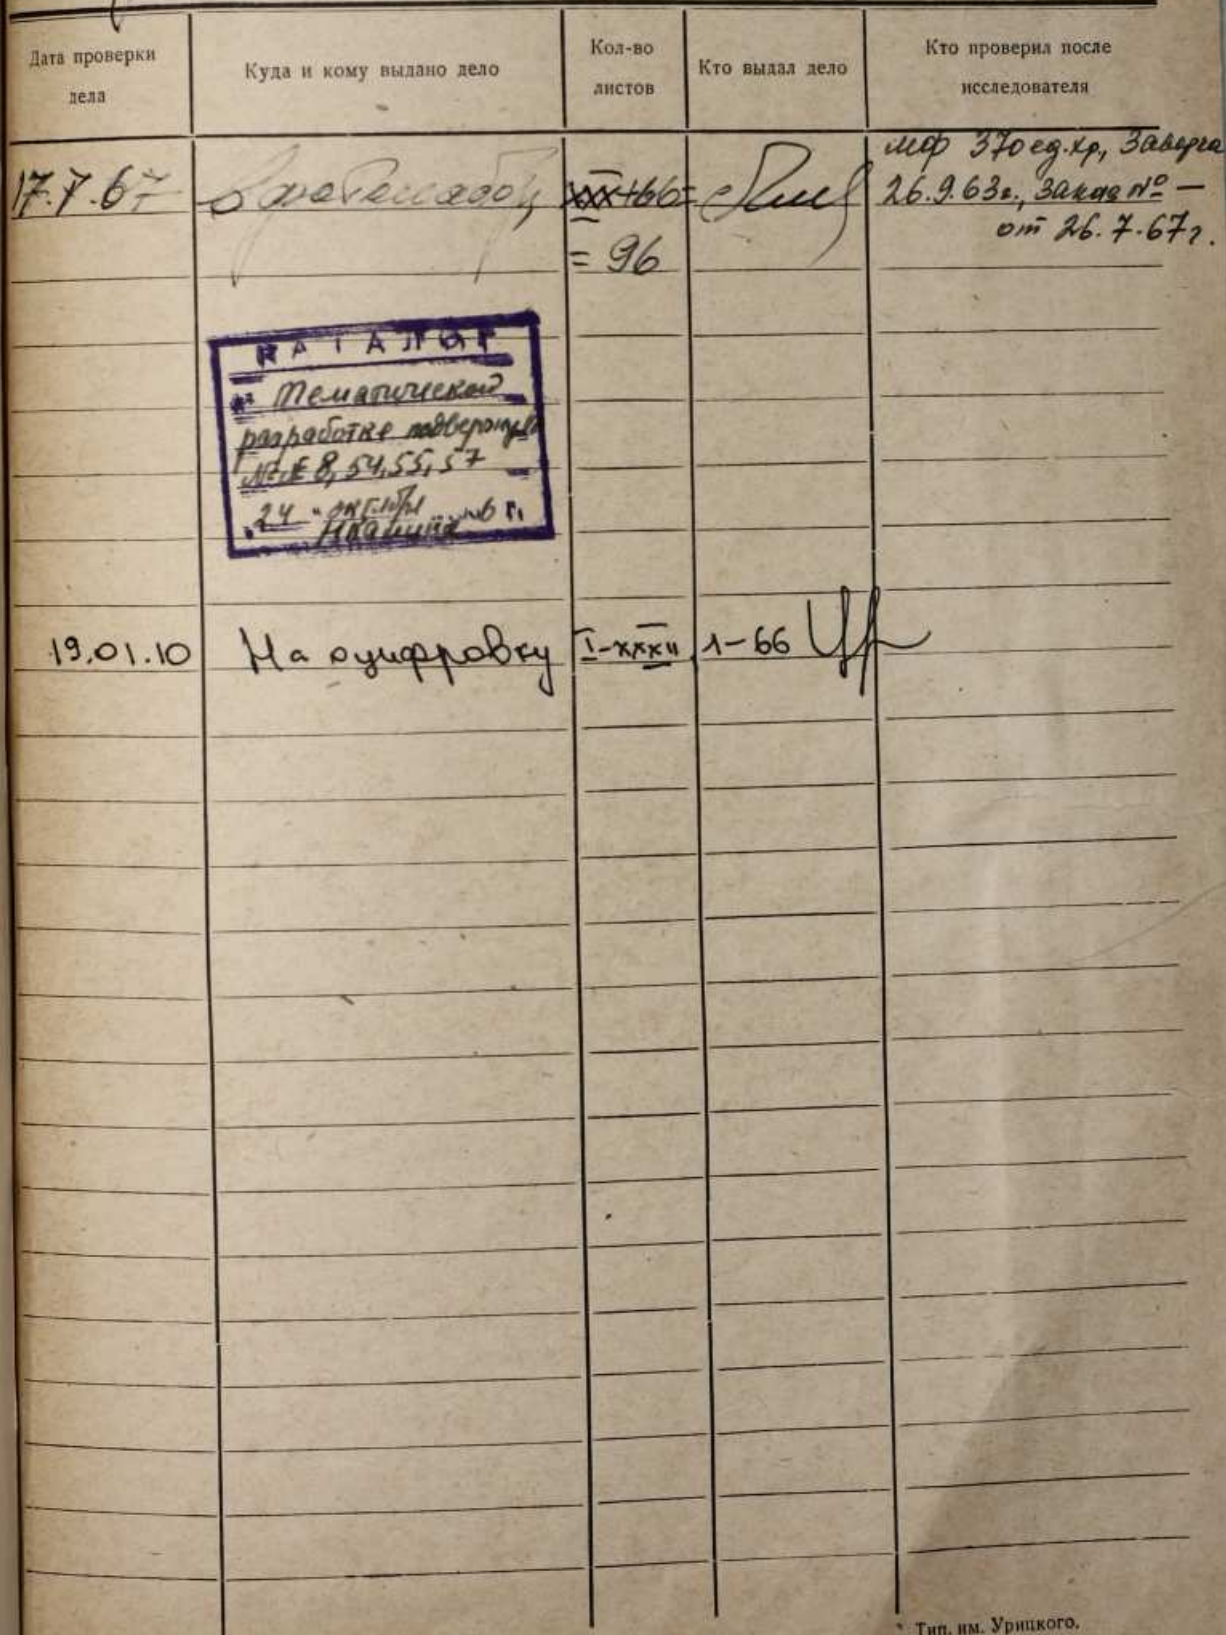 Дата проверки
дела
Куда и кому выдано дело
Кол-во
листов
Кто выдал дело
Кто проверил после
исследователя
17.7.67
XXX+66=
= 96
мф 370 ед.хр,
26.9.63г., Заказ № —
от 26.7.67г.
КАТАЛОГ
Тематической
разработке подвергнуты
№№ 8, 54, 55, 57
"24" октября 6 г.
19.01.10
На оцифровку
I-XXXII
1-66
Тип. им. Урицкого.